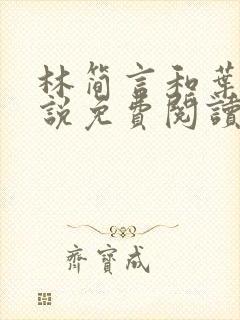 林简言和葉
說免費閱讀
齊寶成